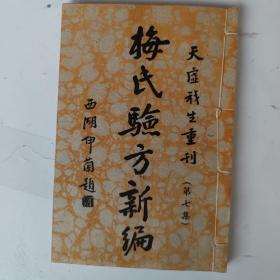 天虚我生重刊
（第七集）
梅氏驗方新編
西湖伊蘭題